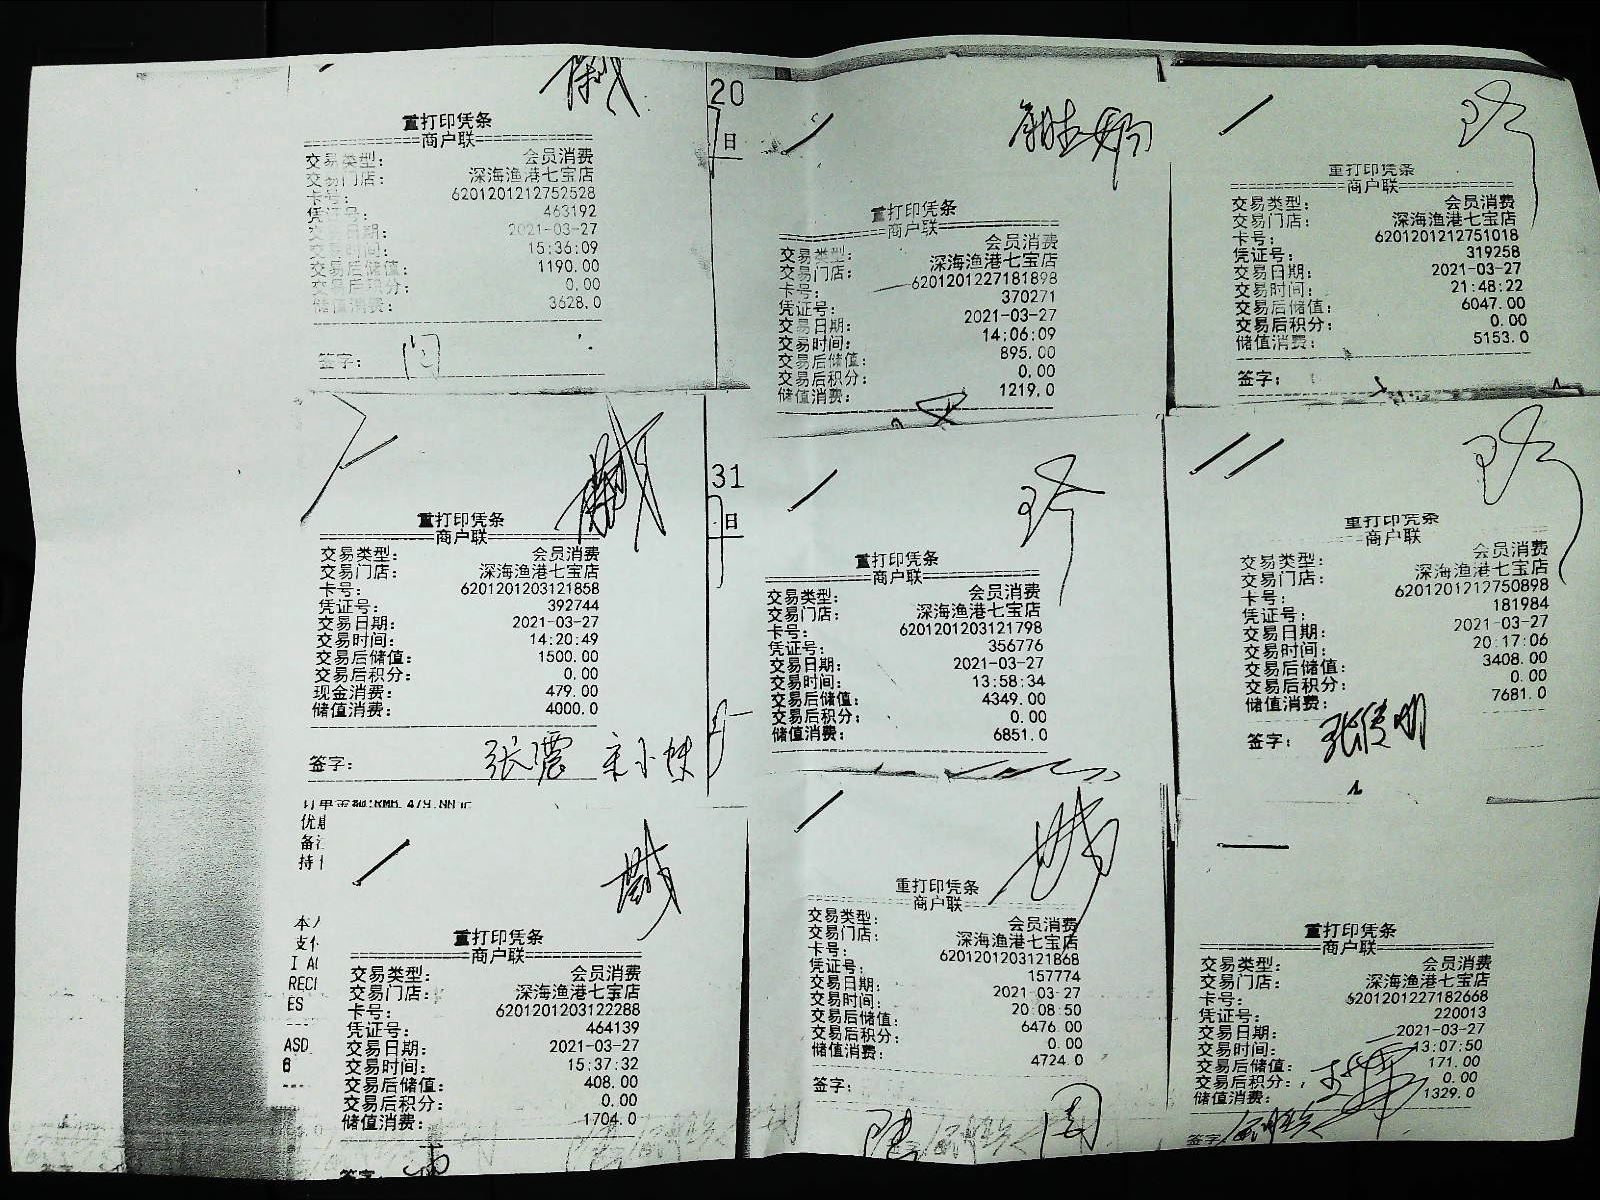 重打印凭条
商户联
交易类型： 会员消费
交易门店： 深海渔港七宝店
卡号： 6201201212752528
凭证号： 463192
交易日期： 2021-03-27
交易时间： 15:36:09
交易后储值： 1190.00
交易后积分： 0.00
储值消费： 3628.0
签字：
20
日
重打印凭条
商户联
交易类型： 会员消费
交易门店： 深海渔港七宝店
卡号： 6201201227181898
凭证号： 370271
交易日期： 2021-03-27
交易时间： 14:06:09
交易后储值： 895.00
交易后积分： 0.00
储值消费： 1219.0
重打印凭条
商户联
交易类型： 会员消费
交易门店： 深海渔港七宝店
卡号： 6201201212751018
凭证号： 319258
交易日期： 2021-03-27
交易时间： 21:48:22
交易后储值： 6047.00
交易后积分： 0.00
储值消费： 5153.0
签字：
重打印凭条
商户联
交易类型： 会员消费
交易门店： 深海渔港七宝店
卡号： 6201201203121858
凭证号： 392744
交易日期： 2021-03-27
交易时间： 14:20:49
交易后储值： 1500.00
交易后积分： 0.00
现金消费： 479.00
储值消费： 4000.0
签字： 张震
31
日
重打印凭条
商户联
交易类型： 会员消费
交易门店： 深海渔港七宝店
卡号： 6201201203121798
凭证号： 356776
交易日期： 2021-03-27
交易时间： 13:58:34
交易后储值： 4349.00
交易后积分： 0.00
储值消费： 6851.0
重打印凭条
商户联
交易类型： 会员消费
交易门店： 深海渔港七宝店
卡号： 6201201212750898
凭证号： 181984
交易日期： 2021-03-27
交易时间： 20:17:06
交易后储值： 3408.00
交易后积分： 0.00
储值消费： 7681.0
签字：
订单金额:RMB 479.00元
优惠
备注
持
本人
支付
I A
RECI
ES
ASD
6
重打印凭条
商户联
交易类型： 会员消费
交易门店： 深海渔港七宝店
卡号： 6201201203122288
凭证号： 464139
交易日期： 2021-03-27
交易时间： 15:37:32
交易后储值： 408.00
交易后积分： 0.00
储值消费： 1704.0
签字：
重打印凭条
商户联
交易类型： 会员消费
交易门店： 深海渔港七宝店
卡号： 6201201203121868
凭证号： 157774
交易日期： 2021-03-27
交易时间： 20:08:50
交易后储值： 6476.00
交易后积分： 0.00
储值消费： 4724.0
签字：
重打印凭条
商户联
交易类型： 会员消费
交易门店： 深海渔港七宝店
卡号： 6201201227182668
凭证号： 220013
交易日期： 2021-03-27
交易时间： 13:07:50
交易后储值： 171.00
交易后积分： 0.00
储值消费： 1329.0
签字